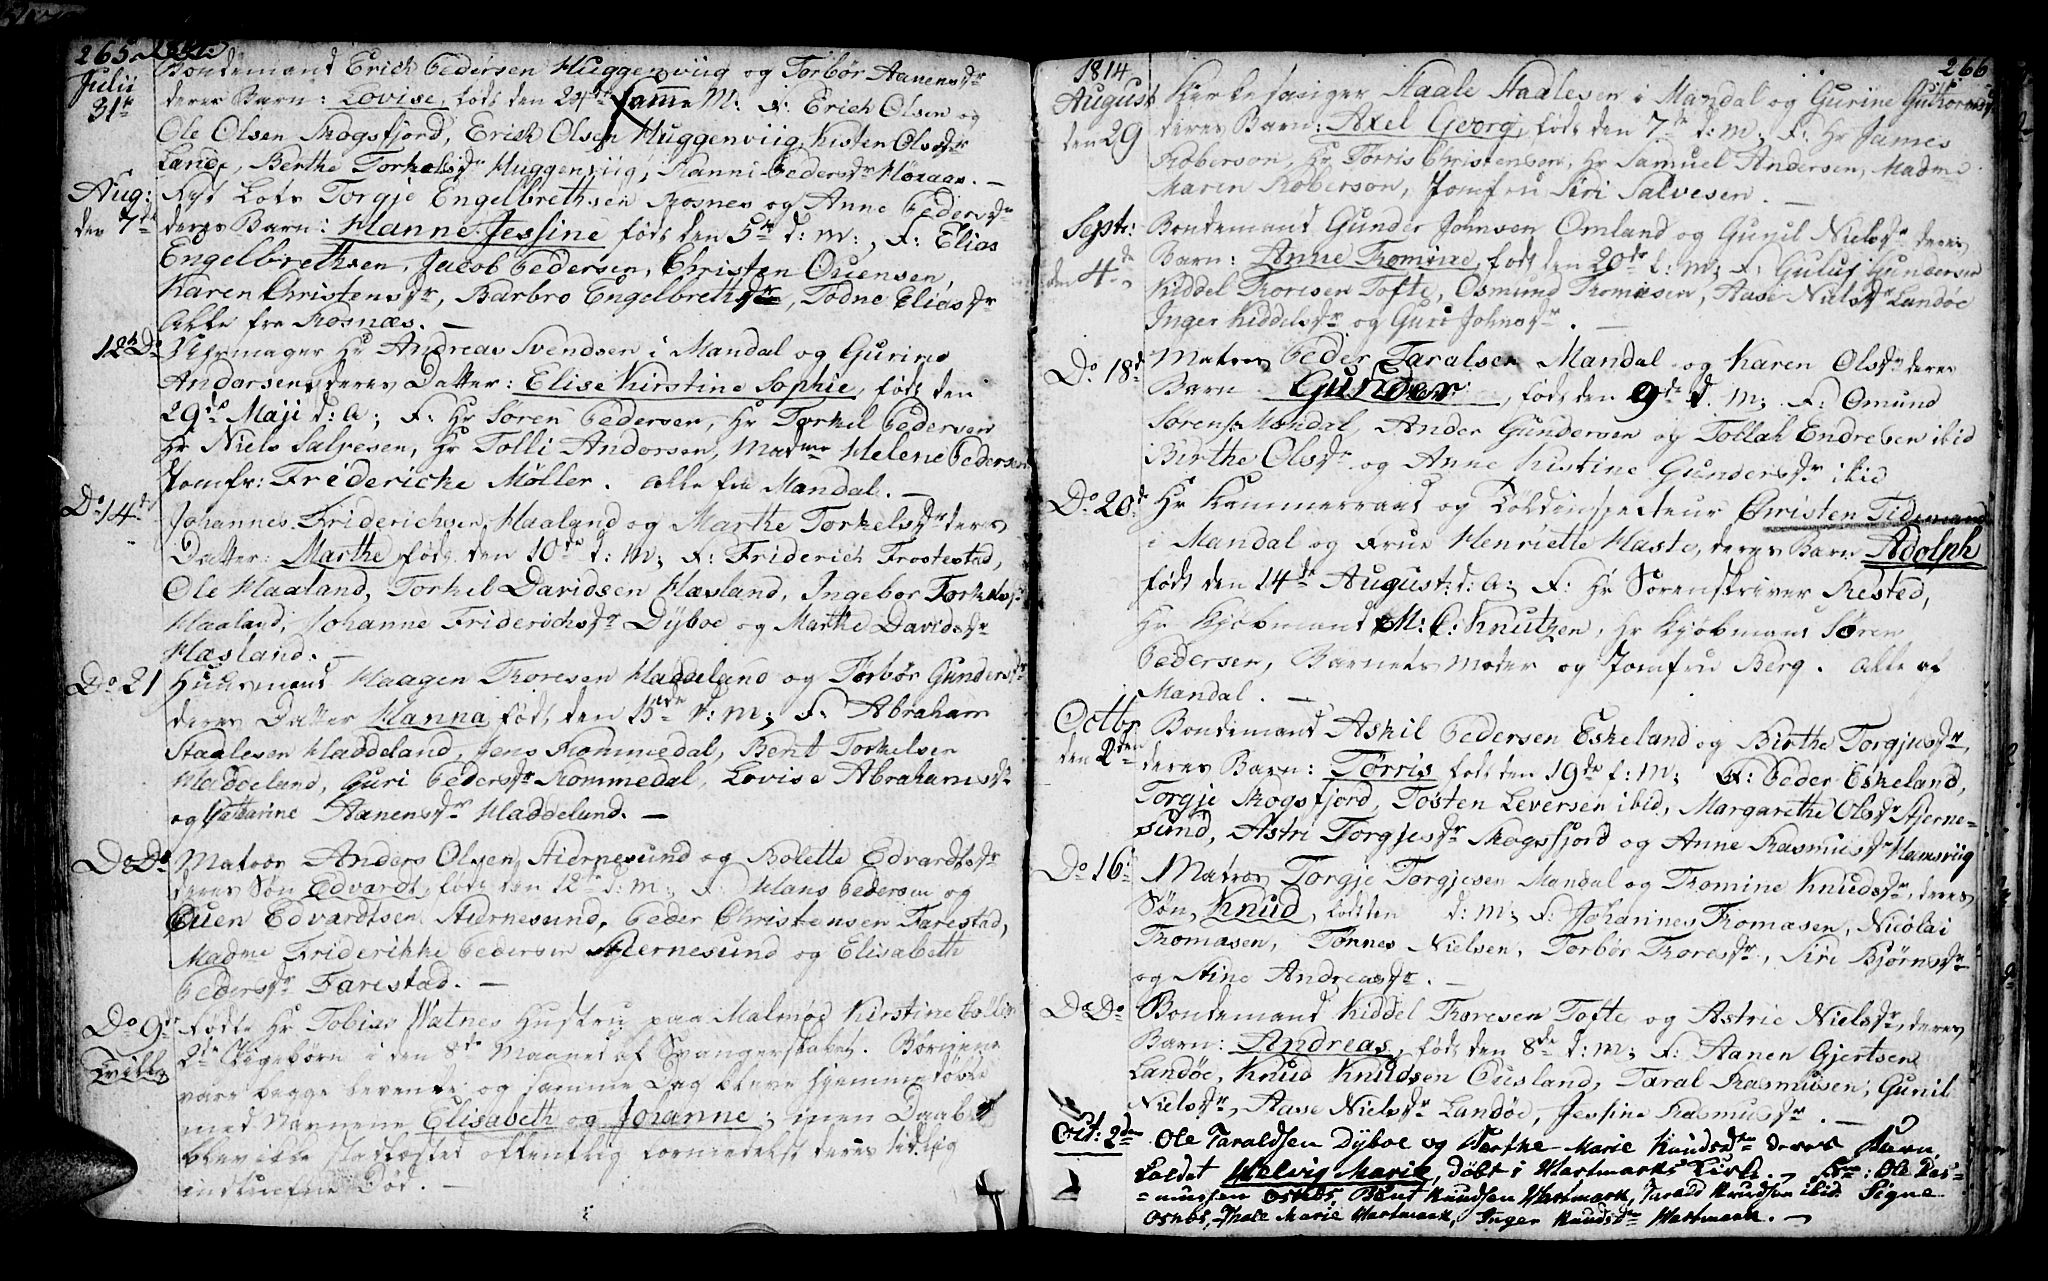 265.
Julii
31te
Bondemand Erich Pedersen Huggenviig og Torbør Aanensdr
deres Barn: Lovise, født den 24de samme M: F: Erich Olsen og
Ole Olsen Skogsfjord, Erich Olsen Huggenviig, Kisten Olsdr
Lande, Berthe Torkelsdr Huggenviig, Hanni Pedersdr Høraas. —
Aug:
den 7de
Lots Torgje Engelbrethsen Rosnes og Anne Pedersdr
deres Barn: Hanne Jessine født den 5te d: m:, F: Elias
Engelbrethsen, Jacob Pedersen, Christen Ouensen,
Karen Christensdr, Barbro Engelbrethsdr, Todne Eliasdr
Alle fra Rosnæs. —
12te Do
Uhrmager Hr Andreas Svendsen i Mandal og Gurine
Andersen, deres Datter: Elise Kirstine Sophie, født den
29de Maji d: A; F: Hr Søren Pedersen, Hr Torkel Pedersen
Hr Niels Salvesen, Hr Tolli Andersen, Madme Helene Pedersen
Jomfr: Fridericke Møller. Alle fra Mandal. —
Do 14de
Johannes Friderichsen Haaland og Marthe Torkelsdr deres
Datter: Marthe født den 10de d: m; F: Friderich Frostestad,
Ole Haaland, Torkel Davidsen Hæsland, Ingebor Torkelsdr
Haaland, Johanne Friderichsdr Dÿboe og Marthe Davidsdr
Hæsland. —
Do 21
Huusmand Haagen Thoresen Haddeland og Torbør Gundersdr
deres Datter Hanna, født den 15de d: m; F: Abraham
Staalesen Haddeland, Jens Kommedal, Bent Torkelsen
Haddeland, Guri Pedersdr Kommedal, Lovise Abrahamsdr
og Catharine Aanensdr Haddeland. —
Do Do
Matros Anders Olsen Stiernesund og Bolette Edvardtsdr
deres Søn Edvardt, født den 12te d: m; F: Hans Pedersen og
Ouen Edvardtsen Stiernesund, Peder Christensen Farestad,
Madme Friderikke Pedersen Stjernesund og Elisabeth
Pedersdr Farestad. —
Do 9de
Tvill.
Fødte Hr Tobias Watnes Hustru paa Malmøe Kirstine
2de Pigebørn i den 8de Maaned af Svangerskabet. Børnene
vare begge levende og samme Dag bleve hjemmedøbte
med Navnene Elisabeth og Johanne; men Daaben
blev ikke stadfæstet offentlig formedelst deres tidlig
indtrufne Død. —
1814
266
August
den 29
Staale Staalesen i Mandal og Gurine Guthormsdr
deres Barn: Axel Georg, født den 7de d: m; F: Hr James
Roberson, Hr Torris Christensen, Hr Samuel Andersen, Madme
Maren Roberson, Jomfru Siri Salvesen. —
Septr:
den 4de
Bondemand Gunder Johnsen Omland og Gunil Nielsdr deres
Barn: Anne Thomine, født den 20de f: m; F: Guluf Gundersen
Kiddel Thoresen Tofte, Osmund Thomesen, Aase Nielsdr Landøe
Inger Kiddelsdr og Guri Johnsdr. —
Do 18de
Matros Peder Taralsen Mandal og Karen Olsdr deres
Barn Gunder, født den 9de d. m; F: Omund
Sørens. Mandal, Ander Gundersen og Tollak Endresen ibid
Birthe Olsdr og Anne Kistine Gundersdr ibid
Do 20de
Hr Kammerraad og Toldinspecteur Christen Tidemand
i Mandal og Frue Henriette Haste, deres Barn Adolph
født den 14de August: d: A; F: Hr Sorenskriver Rested,
Hr Kjøbmand M: C: Knutzen, Hr Kjøbmand Søren
Pedersen, Barnets Moder og Jomfru Berg. Alle af
Mandal. —
Octbr
den 2den
Bondemand Askil Pedersen Eskeland og Birthe Torgjusdr,
deres Barn: Torris født den 19de f: m; F: Peder Eskeland,
Torgje Skogsfjord, Tosten Leversen ibid, Margarethe Olsdr Stjerne-
sund, Astri Torgjesdr Skogsfjord og Anne Rasmusdr Hamsviig
Do 16:
Matros Torgje Torgjesen Mandal og Thomine Knudsdr, deres
Søn, Knud, født den d: m; F: Johannes Thomasen, Nicolai
Thomasen, Tønnes Nielsen, Torbør Thoresdr, Siri Bjørnsdr
og Stine Andreasdr. —
Do Do
Bondemand Kiddel Thoresen Tofte og Astrie Nielsdr, deres
Barn: Andreas, født den 8de d: m; F: Aanen Gjertsen
Landøe, Knud Knudsen Ousland, Taral Rasmusen, Gunil
Nielsdr, Aase Nielsdr Landøe, Jessine Rasmusdr. —
Oct: 2den
Ole Taraldsen Dyboe og Marie Knudsdtr deres Barn
kaldet Helvig Marie, døbt i Hartmarks Kirke. — F: Ole Ras-
-mussen Osnes, Bent Knudsen Hartmark, Tarald Knudsen ibid. Signe
Osnes, Thale Marie Hartmark, Inger Knudsdtr Hartmark. —